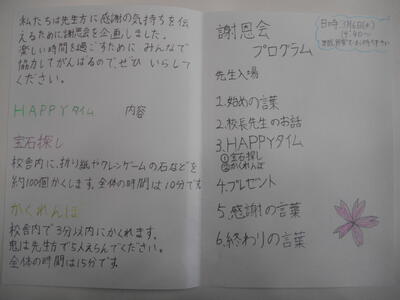 私たちは先生方に感謝の気持ちを伝
えるために謝恩会を企画しました。
楽しい時間を過ごすために みんなで
協力してがんばるのでぜひ いらして
ください。
HAPPYタイム 内容
宝石探し
校舎内に、折り紙やクレンゲームの石などを
約100個かくします。全体の時間は10分です
かくれんぼ
校舎内で3分以内にかくれます。
鬼は先生方で5人えらんでください。
全体の時間は15分です。
謝恩会
プログラム
先生入場
1.始めの言葉
2.校長先生のお話
3.HAPPYタイム
①宝石探し
②かくれんぼ
4.プレゼント
5.感謝の言葉
6.終わりの言葉
日時